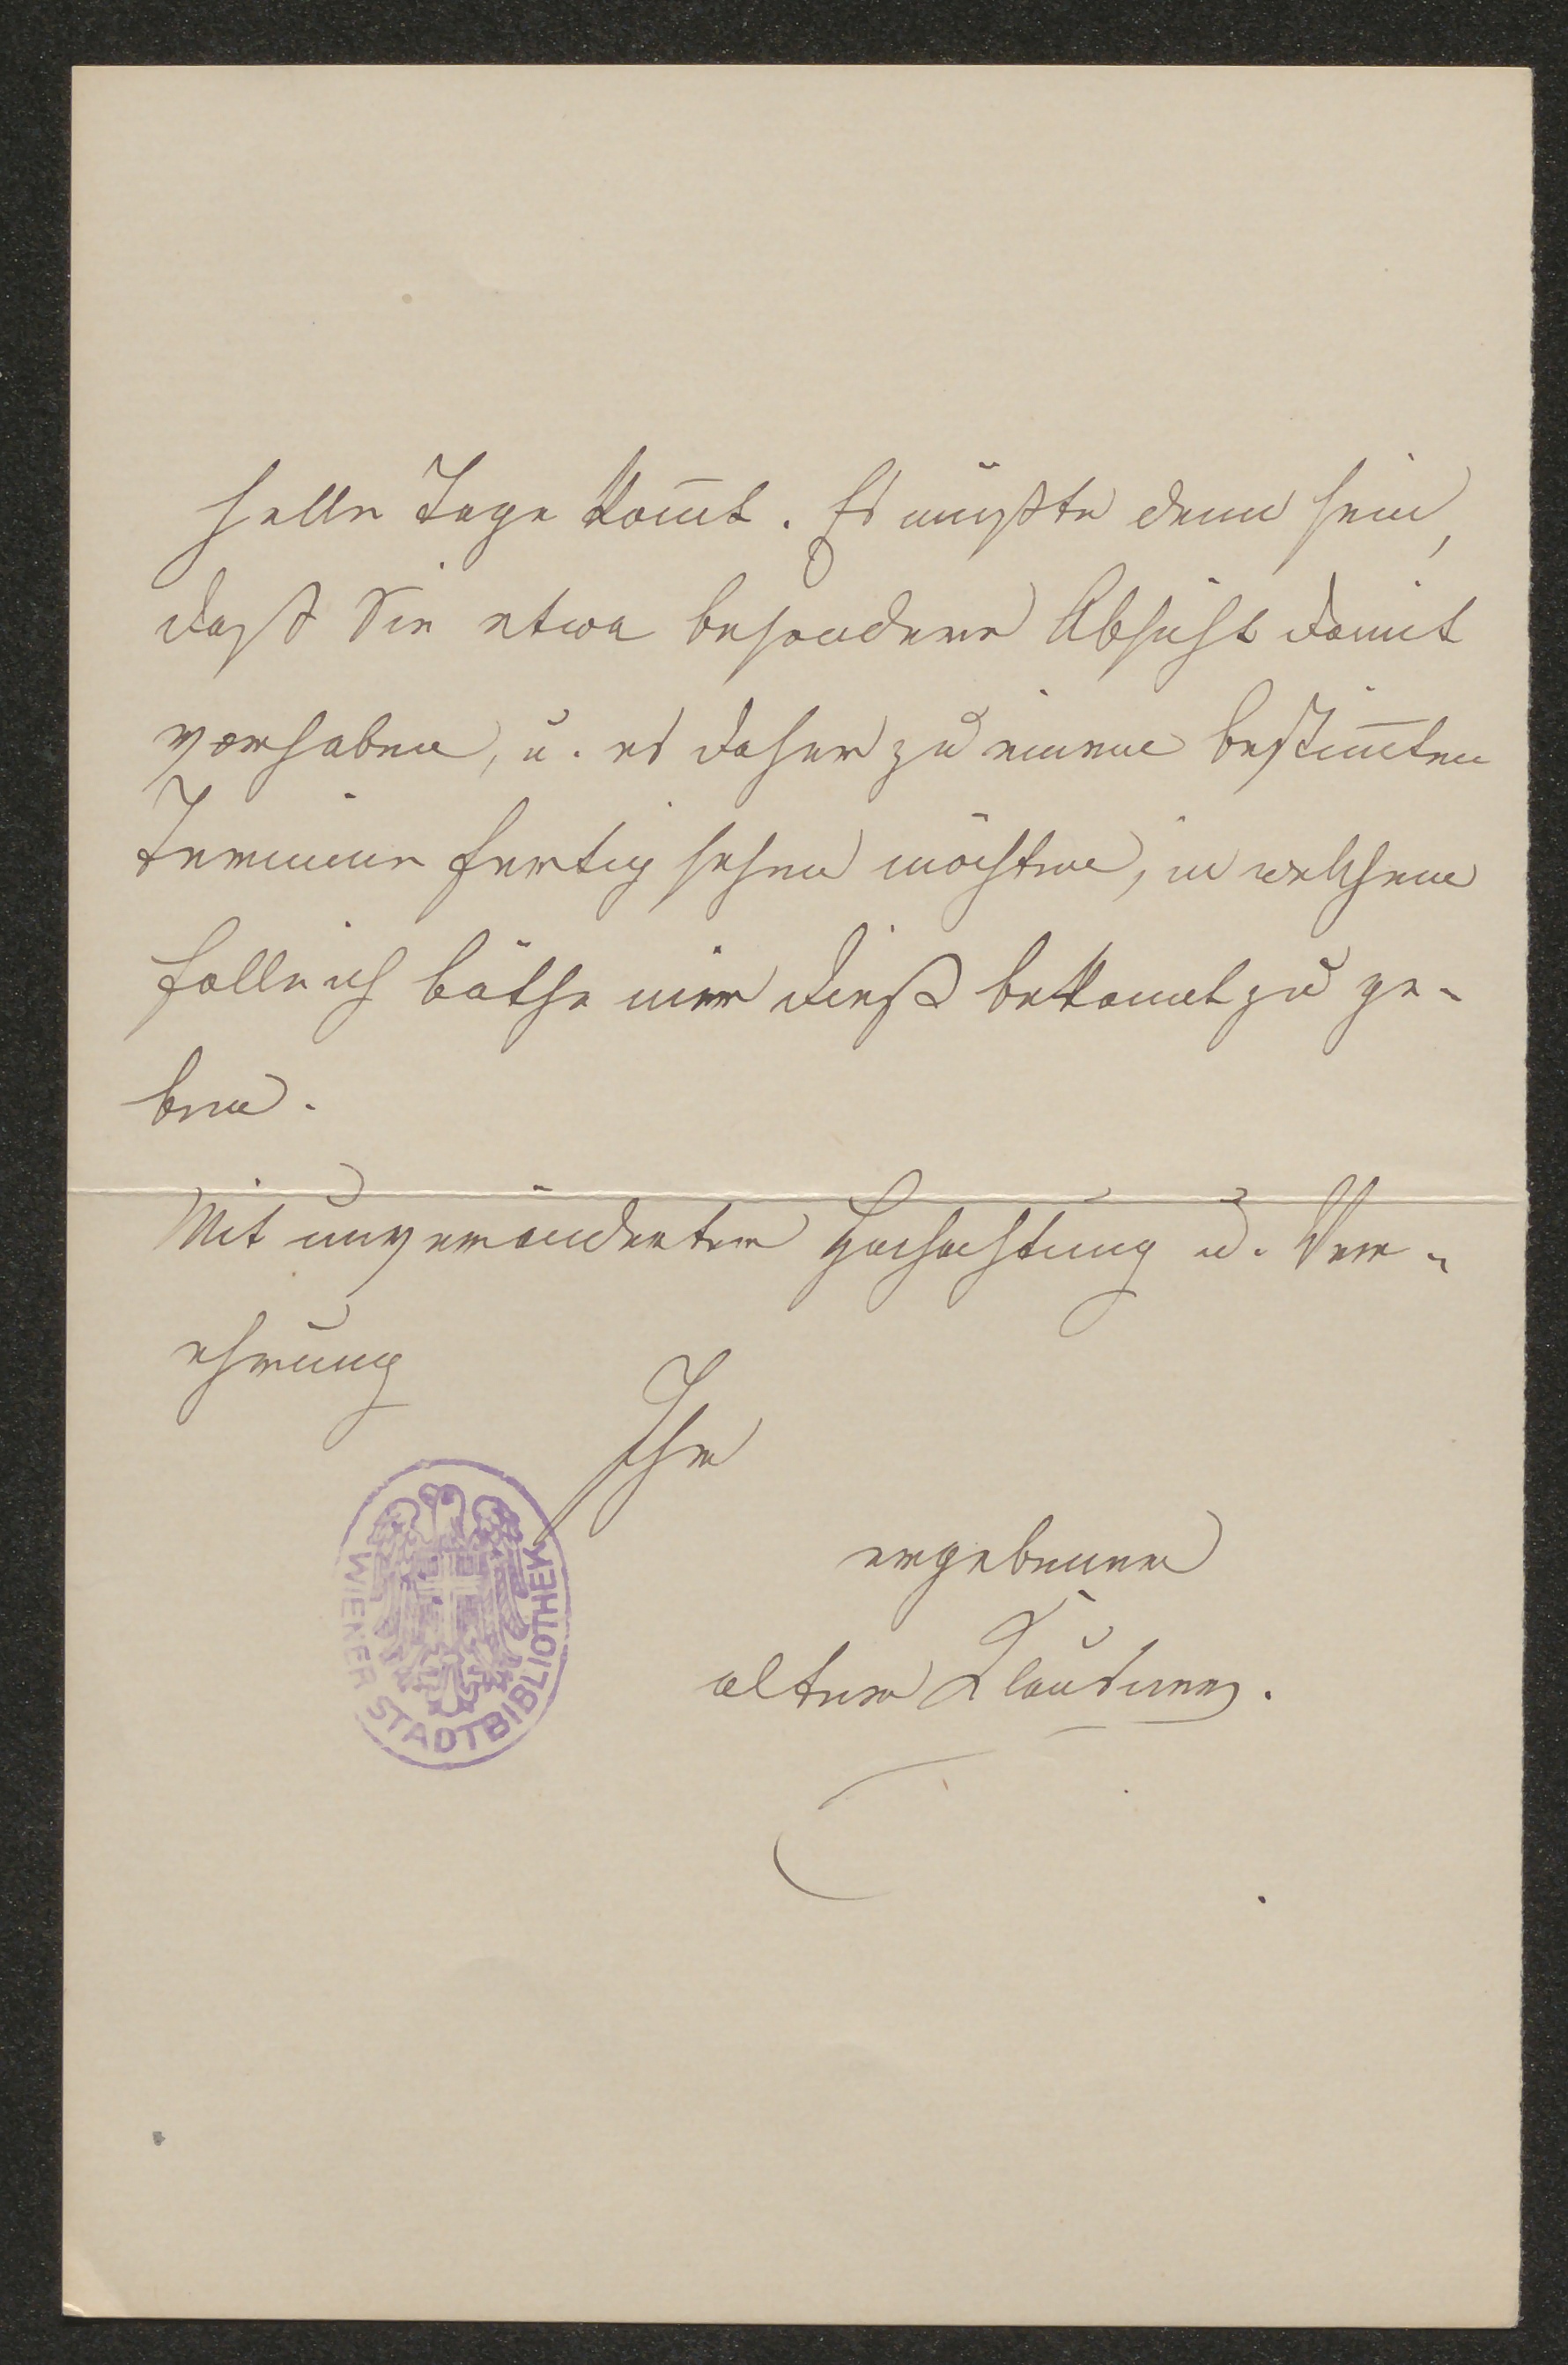 helle Tage kom̅t. Es müßte denn sein,
daß Sie etwa besondere Absicht damit
vorhaben, u. es daher zu einem bestim̅ten
Termine fertig sehen möchten, in welchem
Falle ich bäthe mir dieß bekannt zu ge-
ben.
Mit unveränderter Hochachtung u. Ver-
ehrung
Ihr
ergebener
alter Klaus
WIENER STADTBIBLIOTHEK